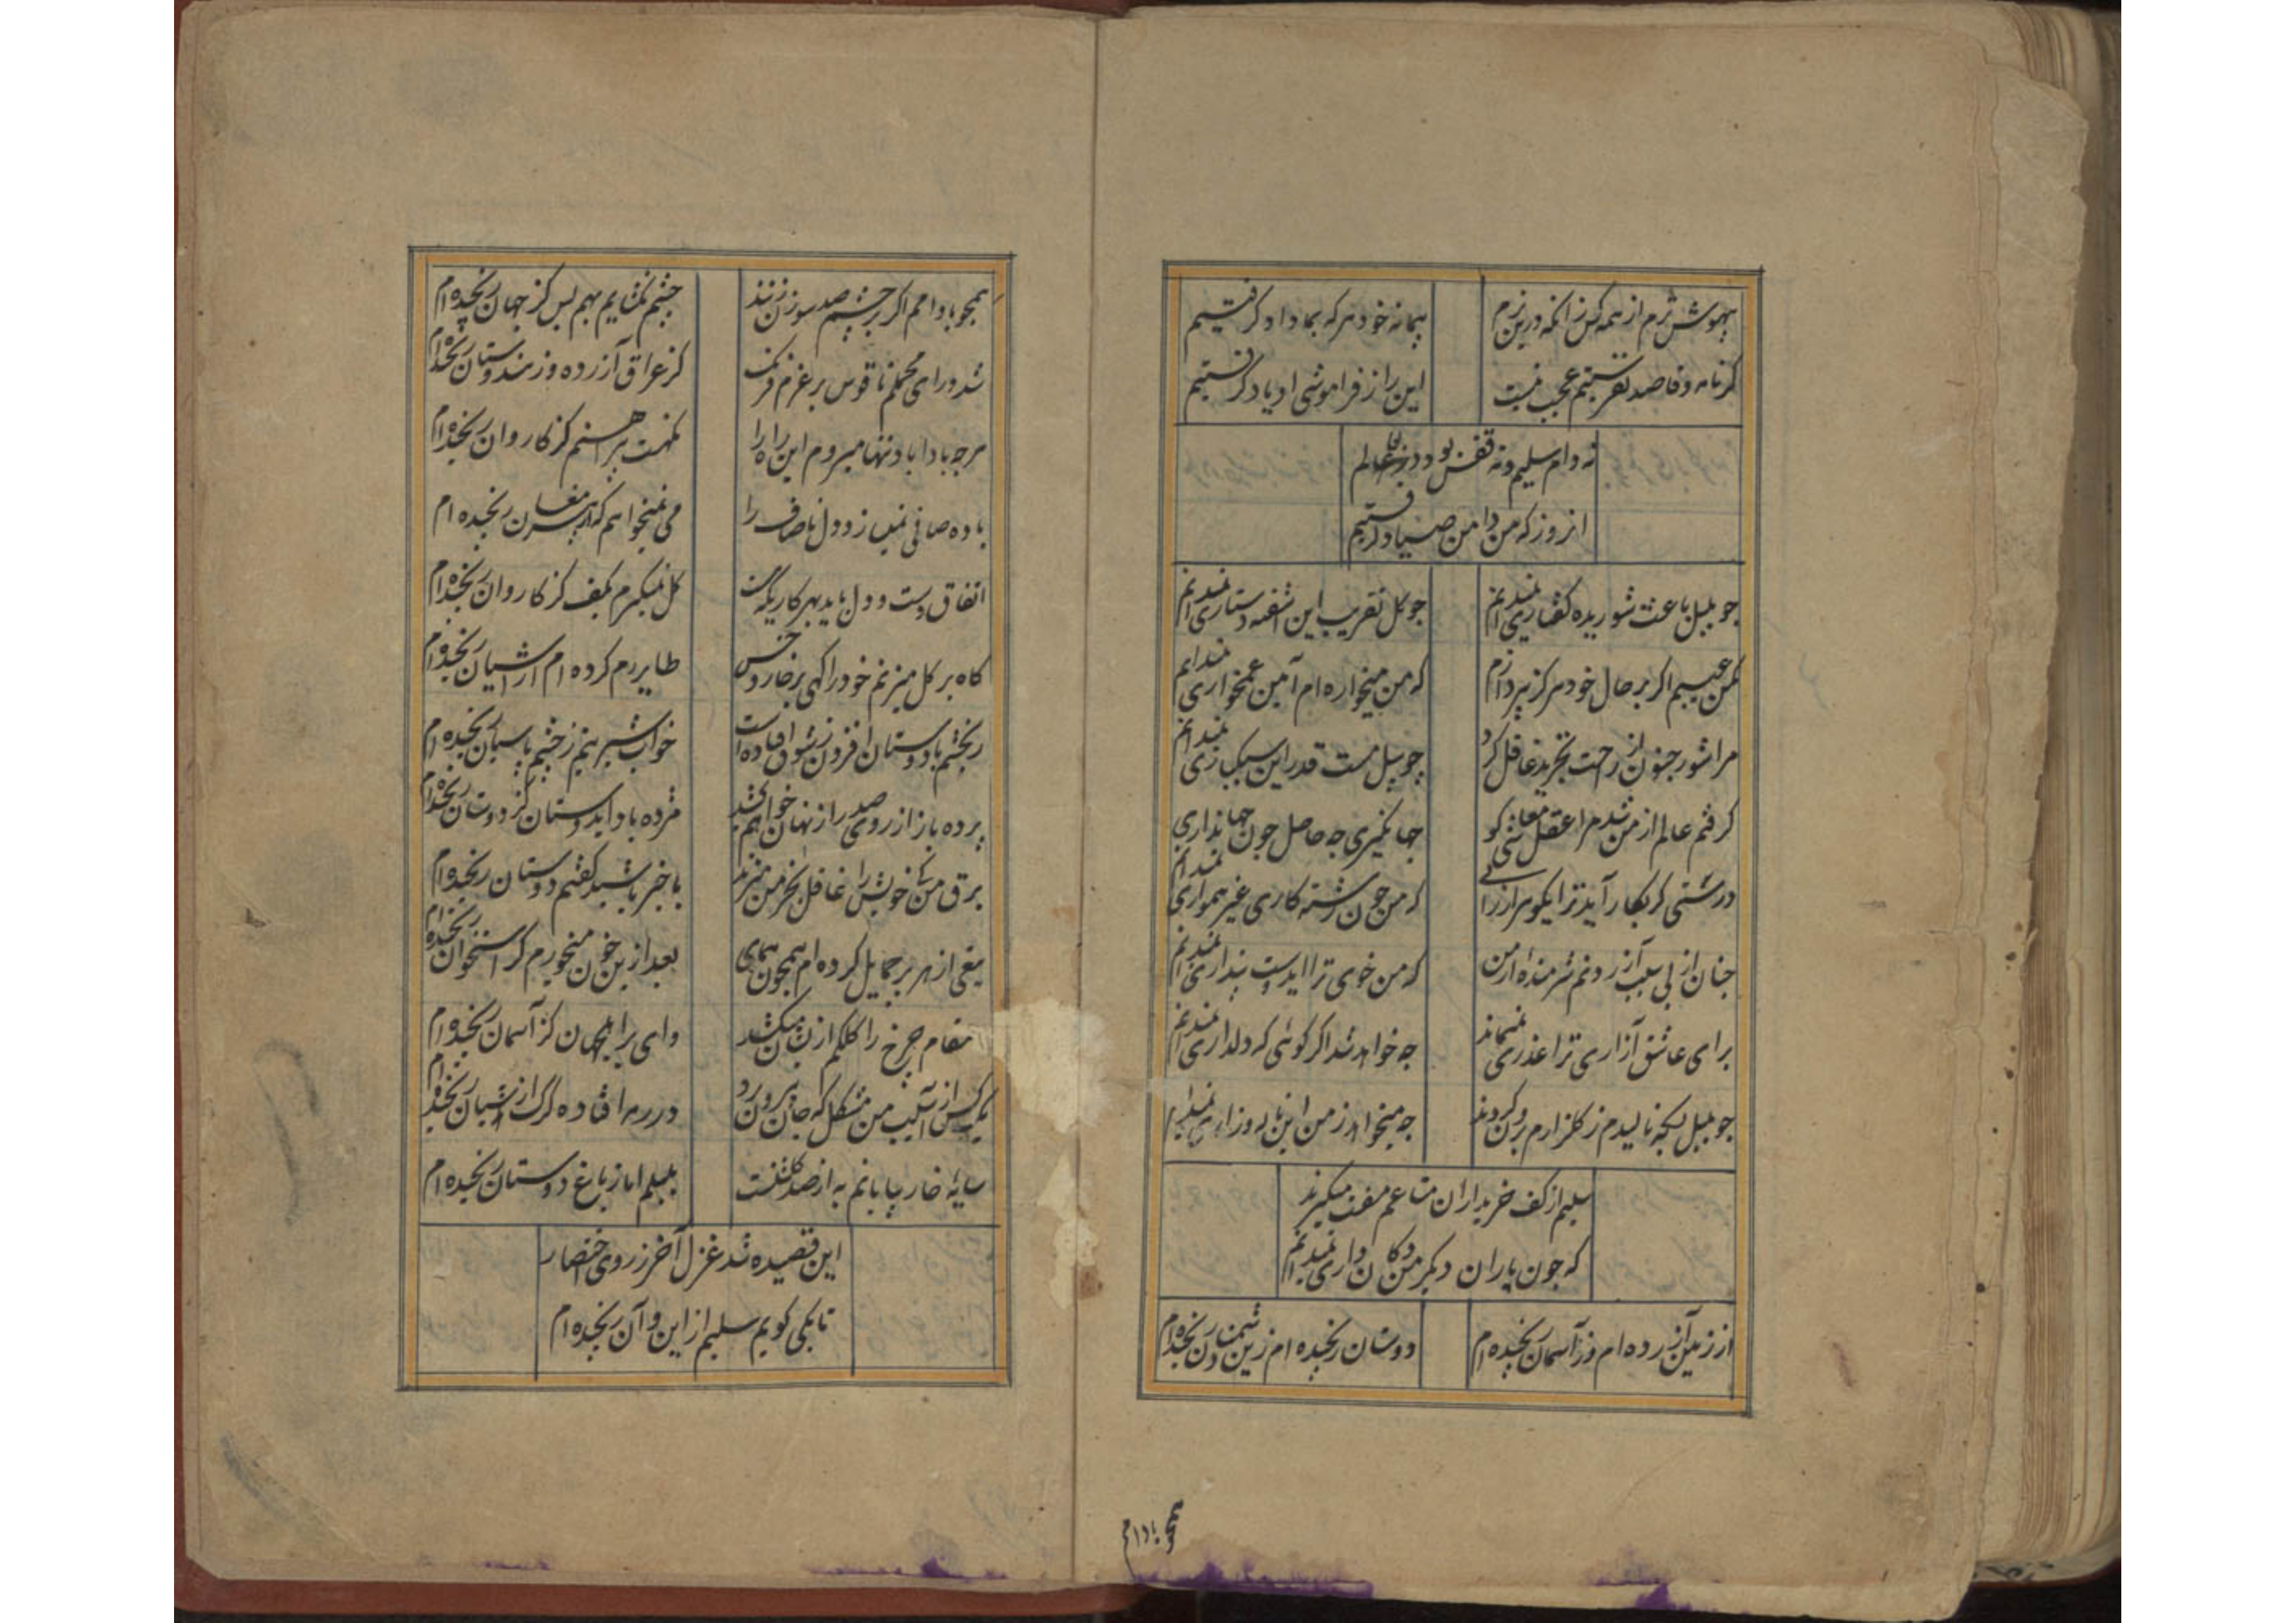 بیهوش ترم از همه کس زانکه درین بزم
پیمانه خود هر که بما داد گرفتیم
گر نامه و قاصد نفرستیم عجب نیست
این را ز فراموشی او یاد گرفتیم
نه دام سلیم و نه قفس بود در عالم
انروز که من دامن صیاد گرفتیم
چو بلبل باعث شوریده گفتاری نمیدانم
چو گل تقریب این آشفته دستاری نمیدانم
مکن عیبم اگر بر حال خود هرگز نپردازم
که من میخواره ام آیین غمخواری نمیدانم
مرا شور جنون از رحت تجرید غافل کرد
چو سیل مست قدر این سبکباری نمیدانم
گرفتم عالم از من شد مرا عقل معاشی کو
جهانگیری چه حاصل چون جهانداری نمیدانم
درشتی گر بکار آید ترا یکو سرازرا
که من چون رشته کاری غیر همواری نمیدانم
چنان از بی سبب آزردنم شرمنده از من
که من خوی ترا ایدوست پنداری نمیدانم
برای عاشق آزاری ترا عذری نمیماند
چه خواهد شد اگر گوئی که دلداری نمیدانم
چو بلبل بسکه نالیدم ز گلزارم برون کردند
چه میخواهد ز من این ناله و زاری نمیدانم
سلیم از کف خریداران متاعم مفت میگیرند
که چون یاران دیگر من دکان داری نمیدانم
از زمین آزرده ام وز آسمان رنجیده ام
دوستان رنجیده ام زین دشمنان رنجیده ام
همچو بادام
همچو بادامم اگر بر چشم صد سوزن زنند
چشم نگشایم بهم بس کز جهان رنجیده ام
شد درای محملم ناقوس بر عزم فرنگ
کز عراق آزرده و ز هندوستان رنجیده ام
هرچه بادا باد تنها میروم این راه را
نکهت پیراهنم کز کاروان رنجیده ام
باده صافی نمیسازد دل ناصاف را
می نمیخواهم که از پیر مغان رنجیده ام
اتفاق دست و دل باید بهر کاری که هست
گل نمیگیرم بکف کز کاروان رنجیده ام
گاه بر گل میزنم خود را گهی بر خار و خس
طایر رم کرده ام از آشیان رنجیده ام
رنجشم با دوستان افزون ز شوق افتاده است
خواب شیرینم ز چشم پاسبان رنجیده ام
پرده باز از روی صد راز نهان خواهم کشید
مژده باد ایدوستان کز دوستان رنجیده ام
برق من خویش را غافل بخرمن میزند
با خبر باشید گفتم دوستان رنجیده ام
تیغی از هر پر حمایل کرده ام همچون همای
بعد ازین خون میخورم کز استخوان رنجیده ام
انتقام چرخ را کلکم از میکشد
وای بر اهل جهان کز آسمان رنجیده ام
یک کس از آسیب من مشکل که جان بیرون برد
در رمه افتاده گرگ از شبان رنجیده ام
سایه خار بیابانم به از صد گلشنست
بلبلم اما ز باغ دوستان رنجیده ام
این قصیده شد غزل آخر ز روی اختصار
تا بکی گویم سلیم از این و آن رنجیده ام